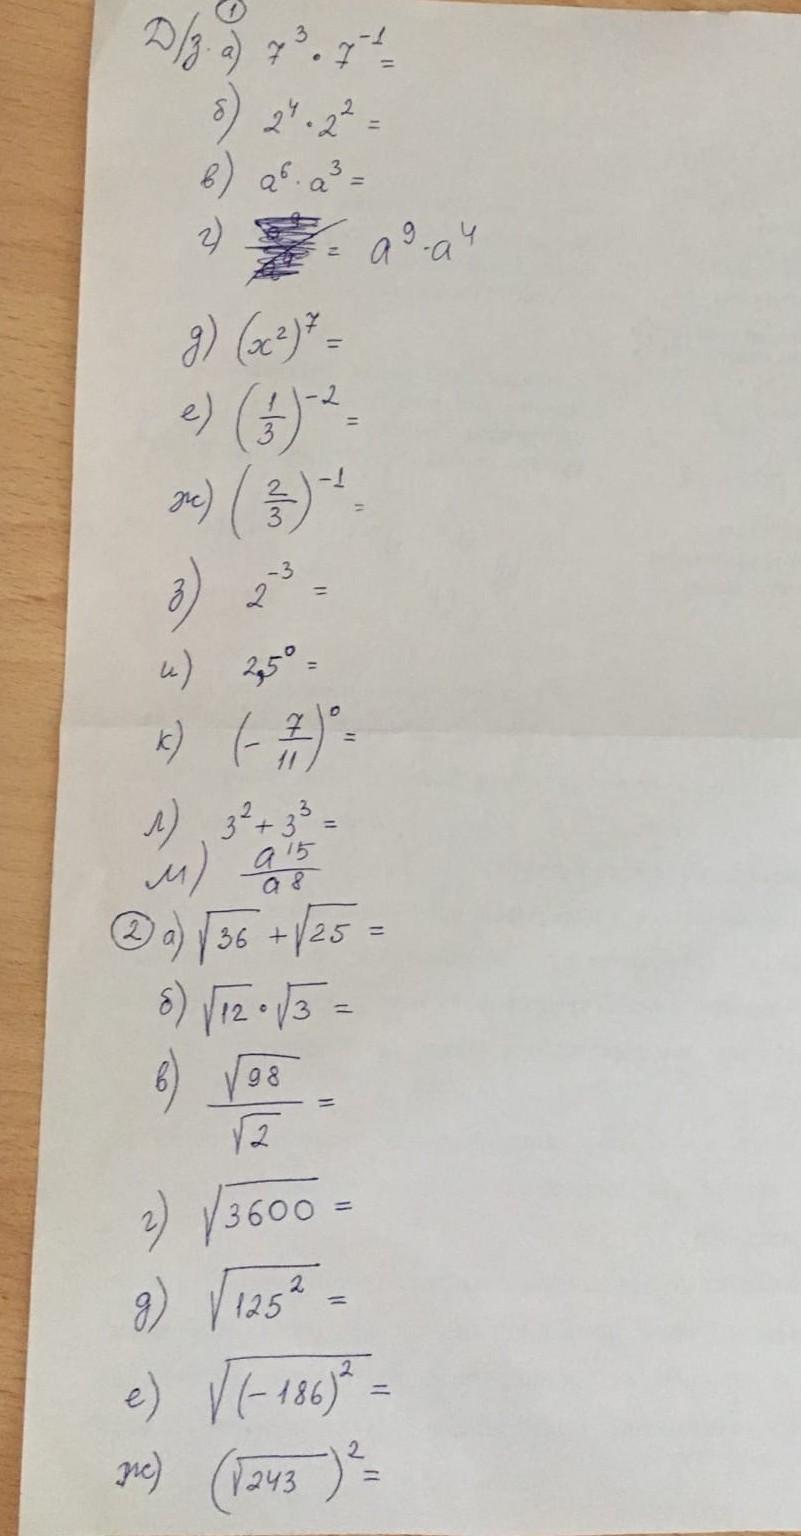 ①
Д/з. а) 7³ · 7⁻¹ =
б) 2⁴ · 2² =
в) a⁶ · a³ =
г) = a⁹ · a⁴
д) (x²)⁷ =
е) (1/3)⁻² =
ж) (2/3)⁻¹ =
з) 2⁻³ =
и) 2,5⁰ =
к) (- 7/11)⁰ =
л) 3² + 3³ =
м) a¹⁵/a⁸
② а) √36 + √25 =
б) √12 · √3 =
в) √98/√2 =
г) √3600 =
д) √125² =
е) √(-186)² =
ж) (√243)² =